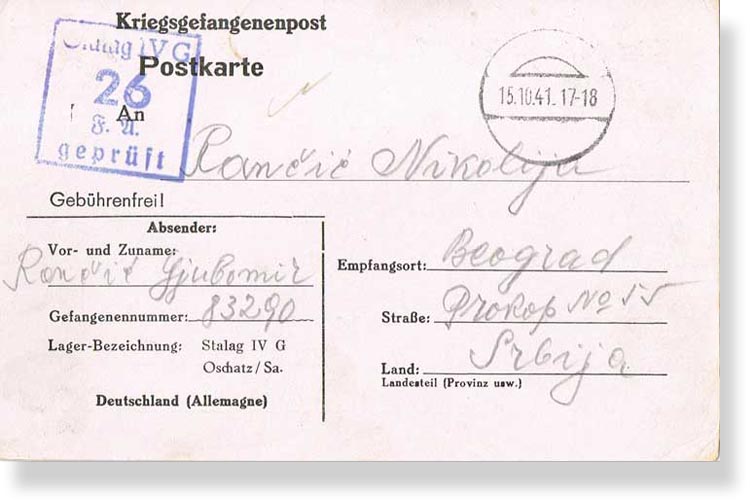 Kriegsgefangenenpost
Postkarte
Stalag IV G
26
F. A.
geprüft
15.10.41. 17-18
An
Rančić Nikolija
Gebührenfrei!
Absender:
Vor- und Zuname:
Rančić Ljubomir
Gefangenennummer: 83290
Lager-Bezeichnung: Stalag IV G
Oschatz/Sa.
Deutschland (Allemagne)
Empfangsort: Beograd
Straße: Prokop No 55
Land: Srbija
Landesteil (Provinz usw.)